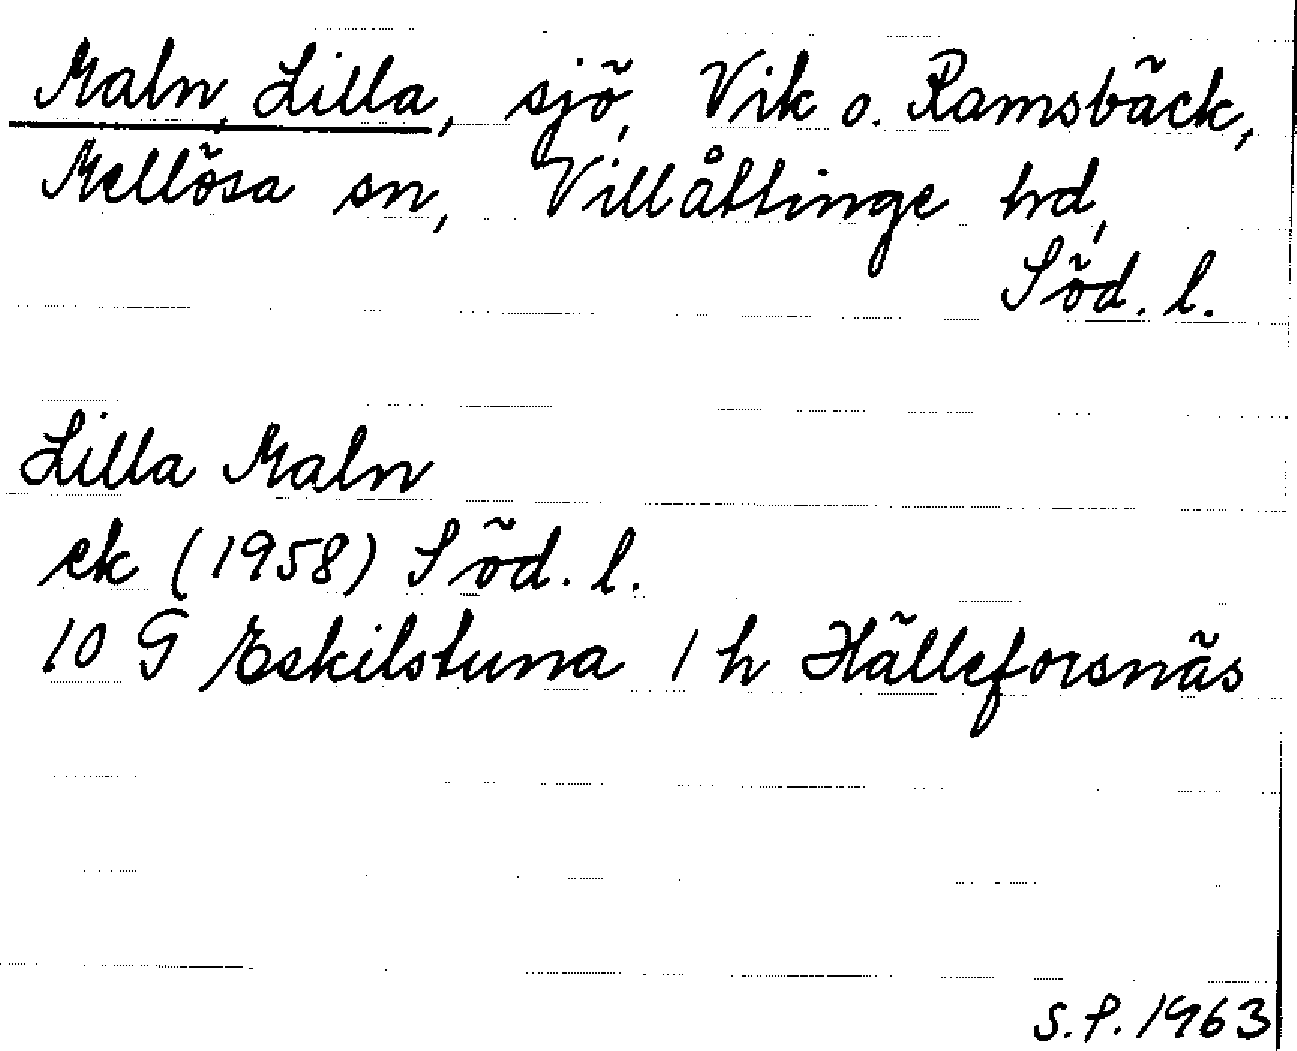 Maln, Lilla, sjö, Vik o. Ramsbäck,
Mellösa sn, Villåttinge hd,
Söd. l.
Lilla Maln
ek (1958) Söd. l.
10 G Eskilstuna 1 h Hälleforsnäs
S.P. 1963